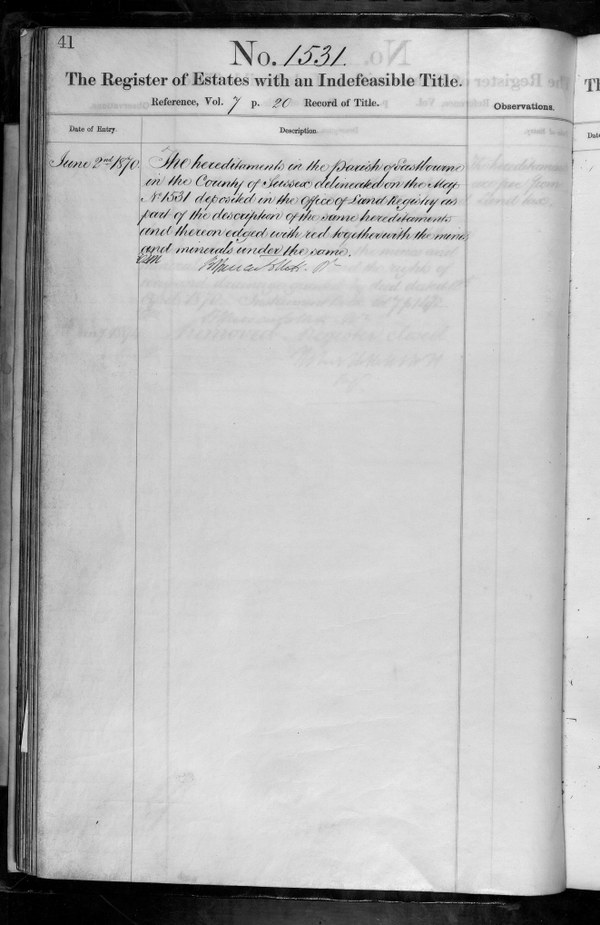 41
No. 1531.
The Register of Estates with an Indefeasible Title.
Reference, Vol. 7 p. 20 Record of Title.
Observations.
Date of Entry.
Description.
June 2nd 1870.
The hereditaments in the parish of Eastbourne
in the County of Sussex delineated on the Map
No 1531 deposited in the Office of Land Registry as
part of the description of the same hereditaments
and thereon edged with red together with the mines
and minerals under the same.